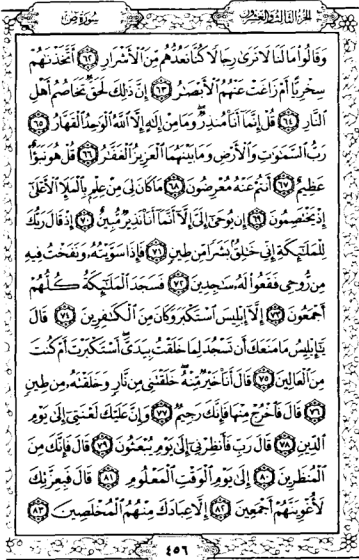 سُورَةُ صٓ
الجُزْءُ الثَّالِثُ وَالعِشْرُونَ
وَقَالُوا۟ مَا لَنَا لَا نَرَىٰ رِجَالًا كُنَّا نَعُدُّهُم مِّنَ ٱلْأَشْرَارِ ٦٢ أَتَّخَذْنَٰهُمْ
سِخْرِيًّا أَمْ زَاغَتْ عَنْهُمُ ٱلْأَبْصَٰرُ ٦٣ إِنَّ ذَٰلِكَ لَحَقٌّ تَخَاصُمُ أَهْلِ
ٱلنَّارِ ٦٤ قُلْ إِنَّمَآ أَنَا۠ مُنذِرٌ وَمَا مِنْ إِلَٰهٍ إِلَّا ٱللَّهُ ٱلْوَٰحِدُ ٱلْقَهَّارُ ٦٥
رَبُّ ٱلسَّمَٰوَٰتِ وَٱلْأَرْضِ وَمَا بَيْنَهُمَا ٱلْعَزِيزُ ٱلْغَفَّٰرُ ٦٦ قُلْ هُوَ نَبَؤٌا۟
عَظِيمٌ ٦٧ أَنتُمْ عَنْهُ مُعْرِضُونَ ٦٨ مَا كَانَ لِىَ مِنْ عِلْمٍۭ بِٱلْمَلَإِ ٱلْأَعْلَىٰٓ
إِذْ يَخْتَصِمُونَ ٦٩ إِن يُوحَىٰٓ إِلَىَّ إِلَّآ أَنَّمَآ أَنَا۠ نَذِيرٌ مُّبِينٌ ٧٠ إِذْ قَالَ رَبُّكَ
لِلْمَلَٰٓئِكَةِ إِنِّى خَٰلِقٌۢ بَشَرًا مِّن طِينٍ ٧١ فَإِذَا سَوَّيْتُهُۥ وَنَفَخْتُ فِيهِ
مِن رُّوحِى فَقَعُوا۟ لَهُۥ سَٰجِدِينَ ٧٢ فَسَجَدَ ٱلْمَلَٰٓئِكَةُ كُلُّهُمْ
أَجْمَعُونَ ٧٣ إِلَّآ إِبْلِيسَ ٱسْتَكْبَرَ وَكَانَ مِنَ ٱلْكَٰفِرِينَ ٧٤ قَالَ
يَٰٓإِبْلِيسُ مَا مَنَعَكَ أَن تَسْجُدَ لِمَا خَلَقْتُ بِيَدَىَّ أَسْتَكْبَرْتَ أَمْ كُنتَ
مِنَ ٱلْعَالِينَ ٧٥ قَالَ أَنَا۠ خَيْرٌ مِّنْهُ خَلَقْتَنِى مِن نَّارٍ وَخَلَقْتَهُۥ مِن طِينٍ
٧٦ قَالَ فَٱخْرُجْ مِنْهَا فَإِنَّكَ رَجِيمٌ ٧٧ وَإِنَّ عَلَيْكَ لَعْنَتِىٓ إِلَىٰ يَوْمِ
ٱلدِّينِ ٧٨ قَالَ رَبِّ فَأَنظِرْنِىٓ إِلَىٰ يَوْمِ يُبْعَثُونَ ٧٩ قَالَ فَإِنَّكَ مِنَ
ٱلْمُنظَرِينَ ٨٠ إِلَىٰ يَوْمِ ٱلْوَقْتِ ٱلْمَعْلُومِ ٨١ قَالَ فَبِعِزَّتِكَ
لَأُغْوِيَنَّهُمْ أَجْمَعِينَ ٨٢ إِلَّا عِبَادَكَ مِنْهُمُ ٱلْمُخْلَصِينَ ٨٣
٤٥٦